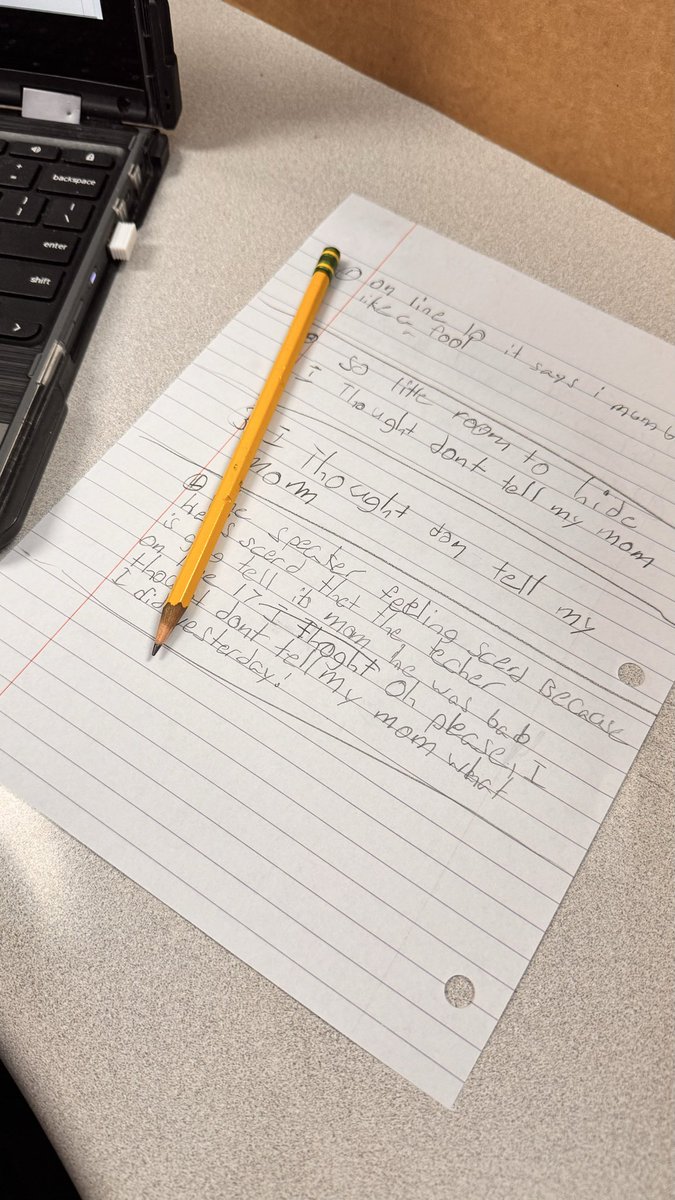 backspace
enter
shift
① on line 10 it says i mumb
like a fool
so little room to hide
I Thought dont tell my mom
3 I Thought don tell my
mom
④ The speaker feeling sceed Because
He is sceed that the techer
is gine tell is mom he was bab
on line 17 I thoght Oh please, I
thought dont tell my mom what
I did yesterday!